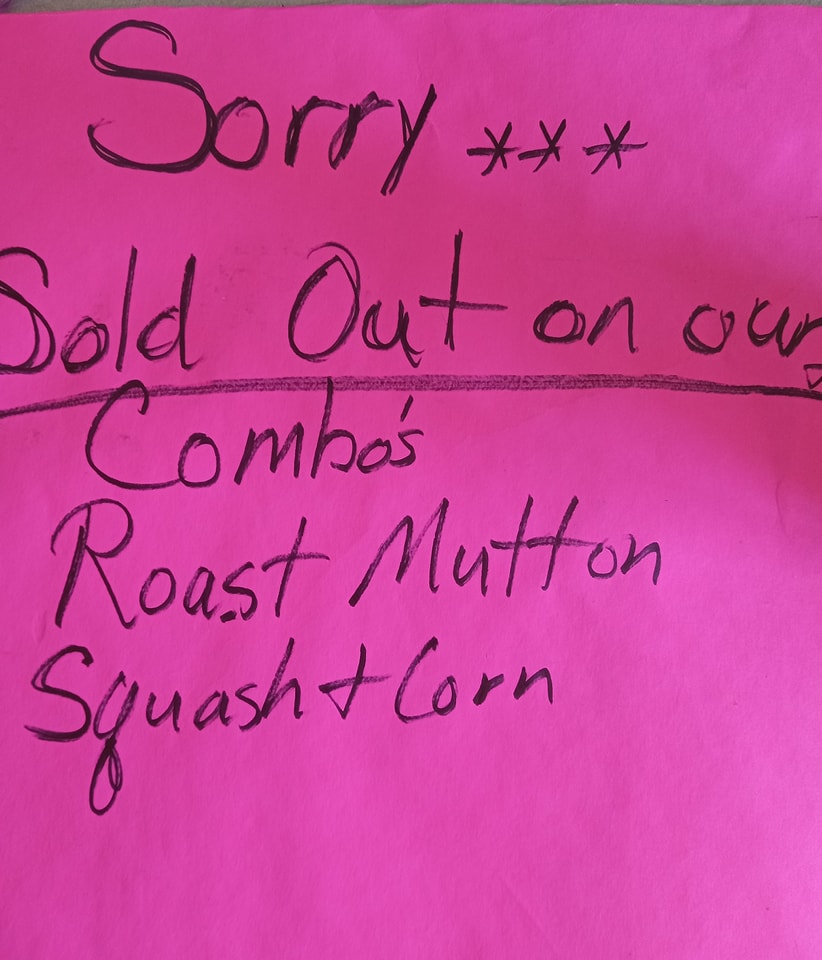 Sorry ***
Sold Out on our
Combo's
Roast Mutton
Squash + Corn